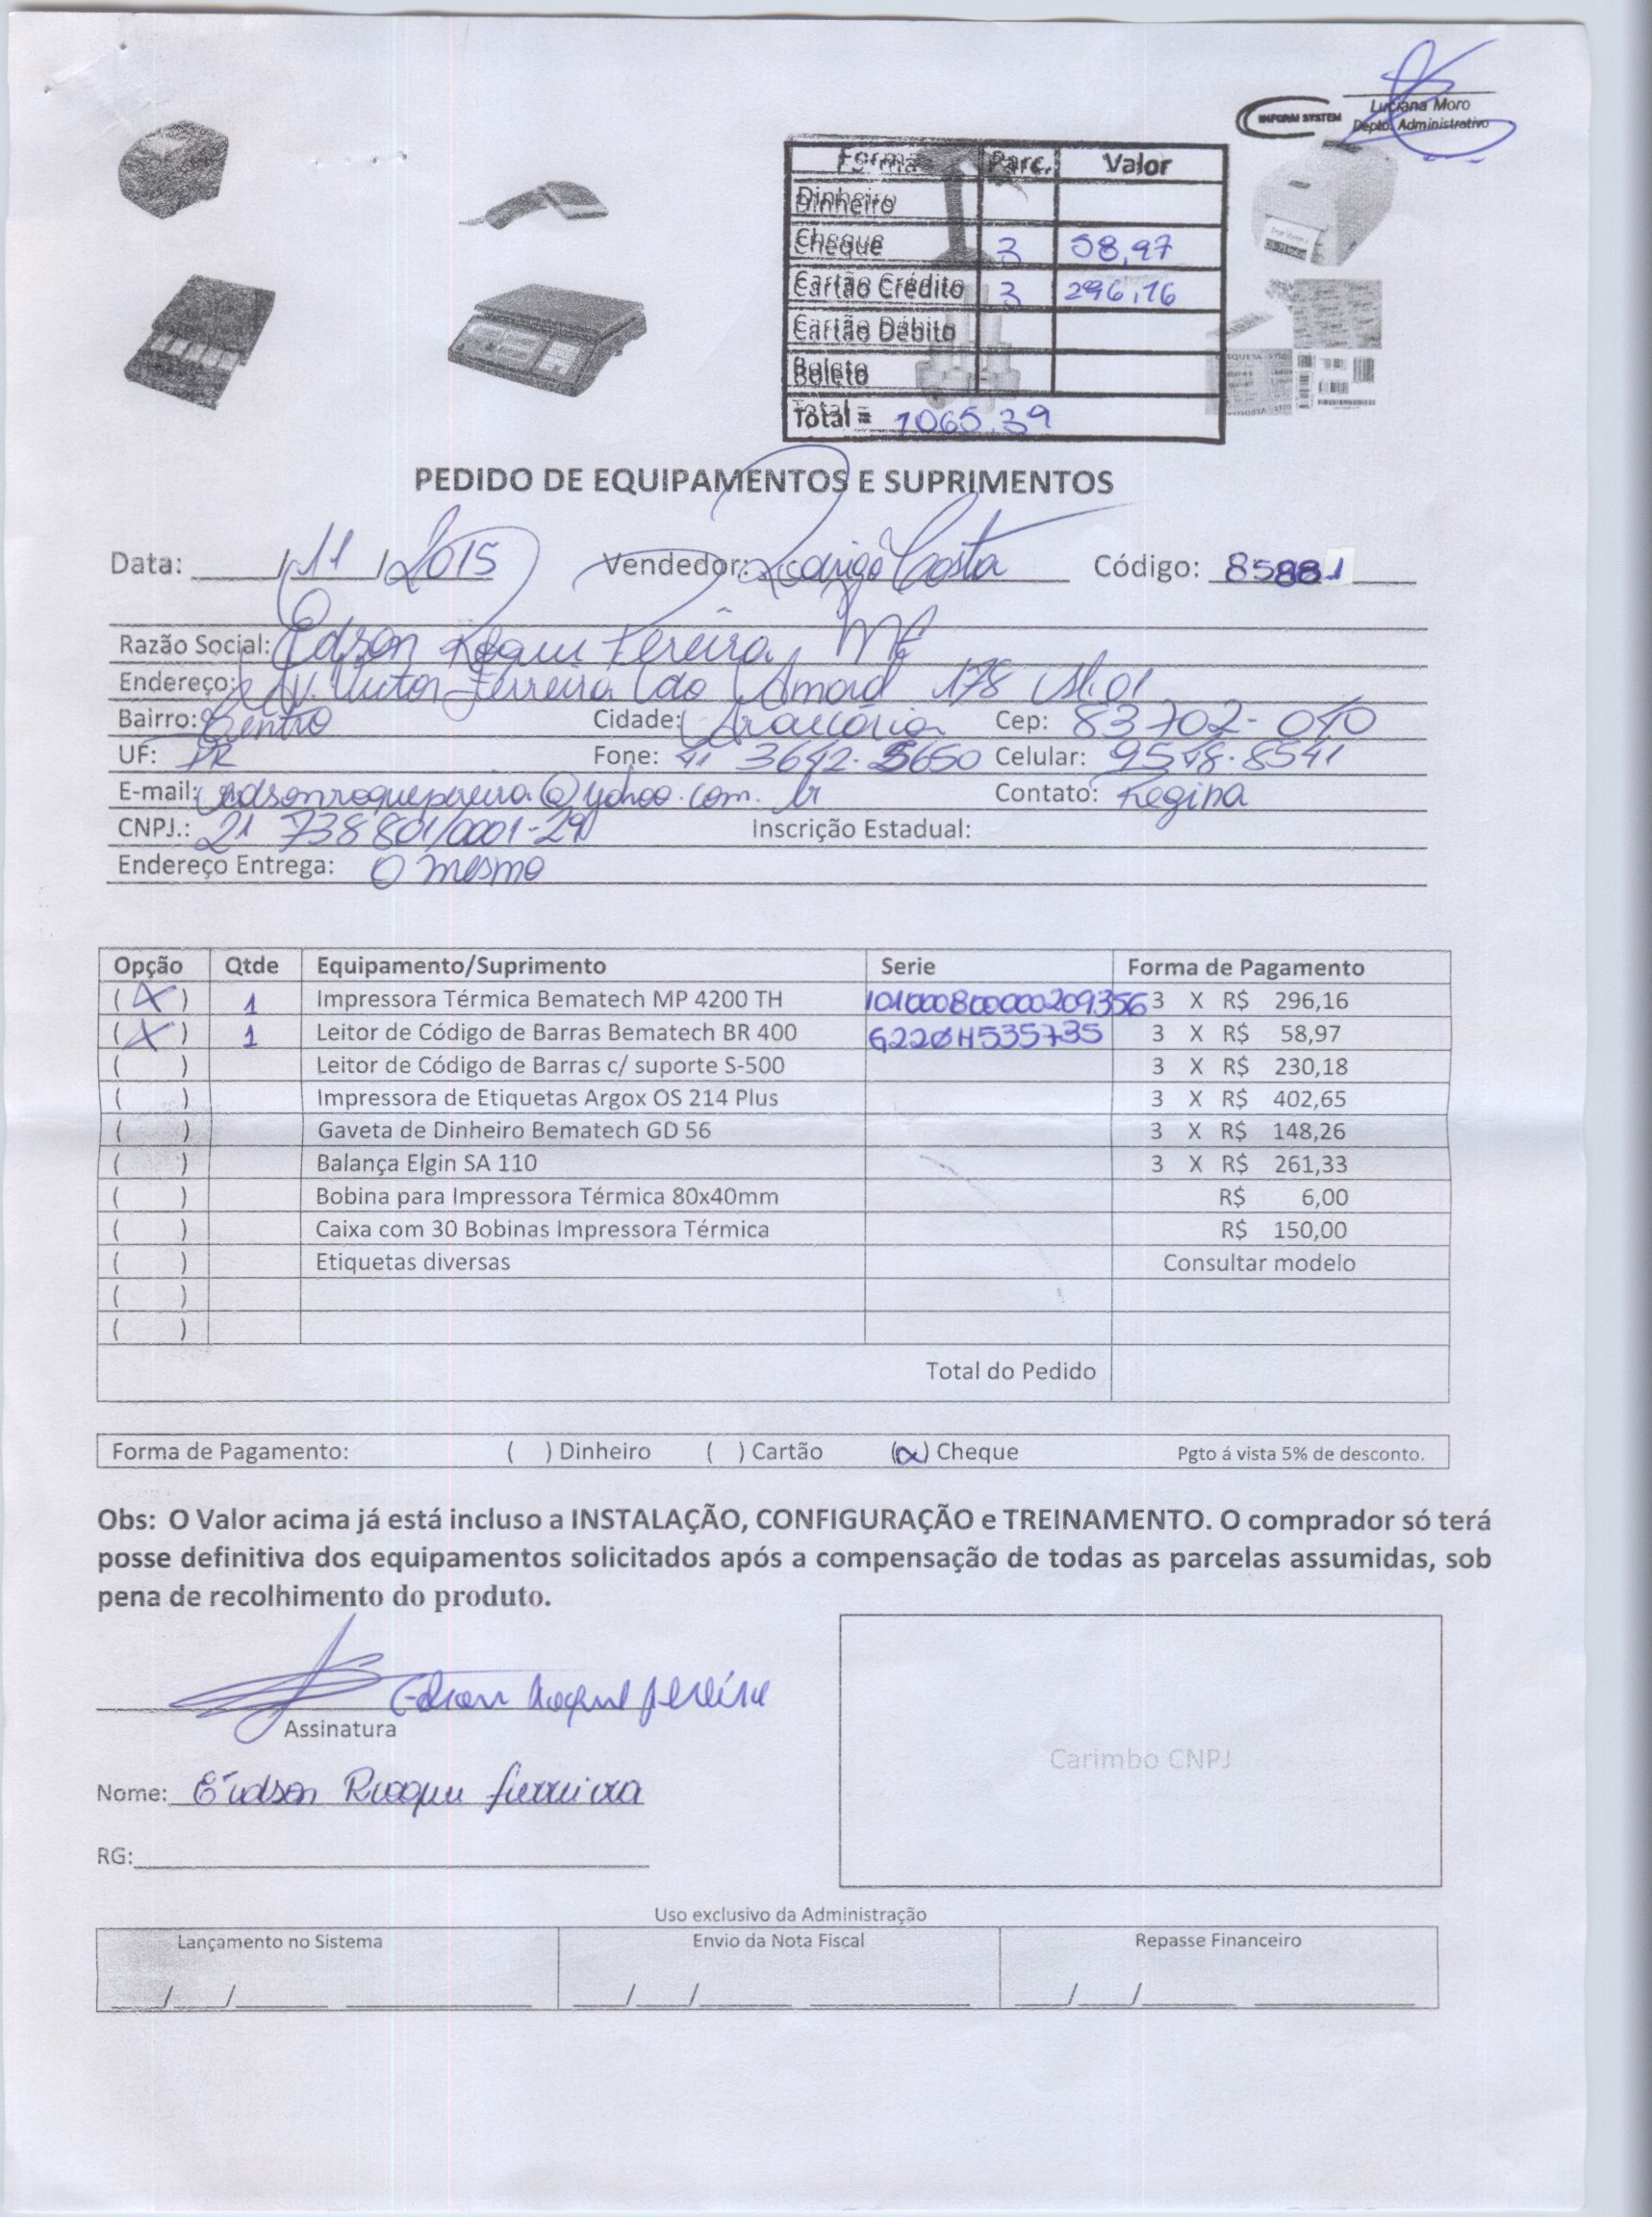 INFORM SYSTEM
Luciana Moro
Depto. Administrativo
Forma Parc. Valor
Dinheiro
Cheque 3 58,97
Cartão Crédito 3 296,16
Cartão Débito
Boleto
Total = 1065,39
PEDIDO DE EQUIPAMENTOS E SUPRIMENTOS
Data: ____/11/2015 Vendedor: Rodrigo Costa Código: 85881
Razão Social: Edson Roque Pereira ME
Endereço: Av. Victor Ferreira do Amaral 178 Sl.01
Bairro: Centro Cidade: Araucária Cep: 83702-040
UF: PR Fone: 41 3642-5650 Celular: 9548-8541
E-mail: edsonroquepereira@yahoo.com.br Contato: Regina
CNPJ.: 21 738 801/0001-29 Inscrição Estadual:
Endereço Entrega: O mesmo
Opção Qtde Equipamento/Suprimento Serie Forma de Pagamento
(X) 1 Impressora Térmica Bematech MP 4200 TH 101000800000209356 3 X R$ 296,16
(X) 1 Leitor de Código de Barras Bematech BR 400 G220H535735 3 X R$ 58,97
( ) Leitor de Código de Barras c/ suporte S-500 3 X R$ 230,18
( ) Impressora de Etiquetas Argox OS 214 Plus 3 X R$ 402,65
( ) Gaveta de Dinheiro Bematech GD 56 3 X R$ 148,26
( ) Balança Elgin SA 110 3 X R$ 261,33
( ) Bobina para Impressora Térmica 80x40mm R$ 6,00
( ) Caixa com 30 Bobinas Impressora Térmica R$ 150,00
( ) Etiquetas diversas Consultar modelo
( )
( )
Total do Pedido
Forma de Pagamento: ( ) Dinheiro ( ) Cartão (x) Cheque Pgto á vista 5% de desconto.
Obs: O Valor acima já está incluso a INSTALAÇÃO, CONFIGURAÇÃO e TREINAMENTO. O comprador só terá
posse definitiva dos equipamentos solicitados após a compensação de todas as parcelas assumidas, sob
pena de recolhimento do produto.
Edson Roque Pereira
Assinatura
Carimbo CNPJ
Nome: Edson Roque Ferreira
RG:
Uso exclusivo da Administração
Lançamento no Sistema Envio da Nota Fiscal Repasse Financeiro
___/___/______ ____________ ___/___/______ ____________ ___/___/______ ____________